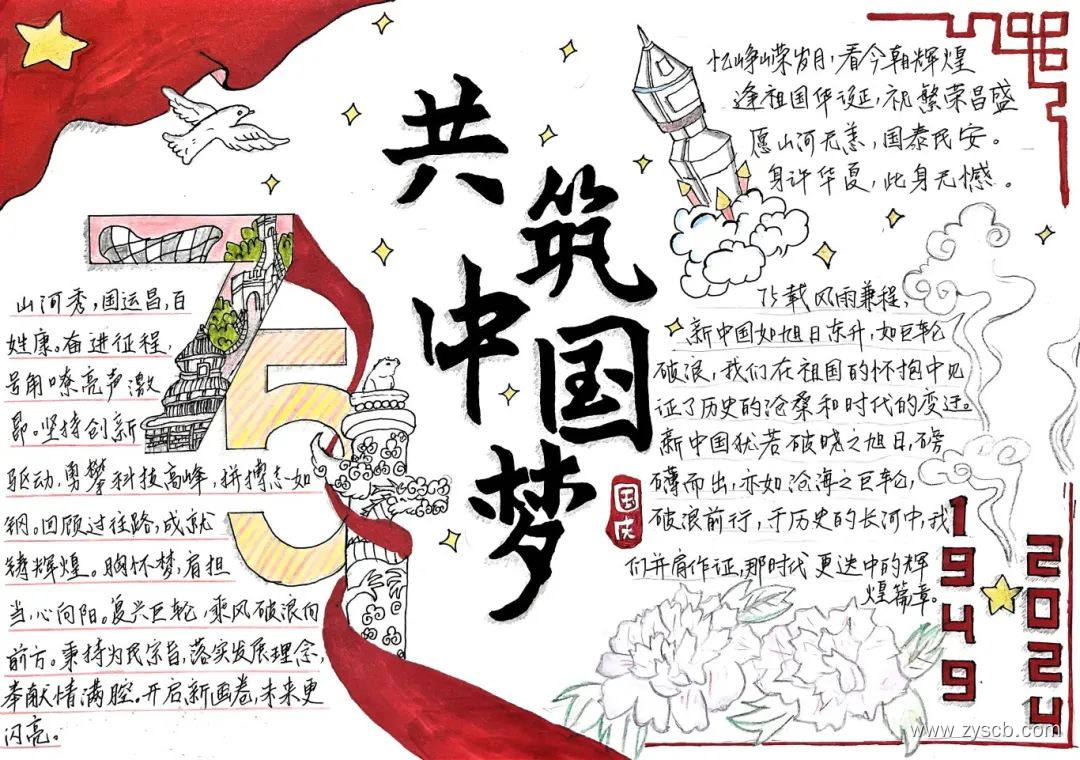 共筑
中国梦
国庆
忆峥嵘岁月，看今朝辉煌
逢祖国华诞，祝繁荣昌盛
愿山河无恙，国泰民安。
身许华夏，此身无憾。
75
山河秀，国运昌，百
姓康。奋进征程，
号角嘹亮声激
昂。坚持创新
驱动，勇攀科技高峰，拼搏志如
钢。回顾过往路，成就
铸辉煌。胸怀梦，肩担
当，心向阳。复兴巨轮，乘风破浪向
前方。秉持为民宗旨，落实发展理念，
奉献情满腔。开启新画卷，未来更
闪亮。
75载风雨兼程，
新中国如旭日东升，如巨轮
破浪，我们在祖国的怀抱中见
证了历史的沧桑和时代的变迁。
新中国犹若破晓之旭日，磅
礴而出，亦如沧海之巨轮，
破浪前行，于历史的长河中，我
们并肩作证，那时代更迭中的辉
煌篇章。
1949
2024
www.zyscb.com